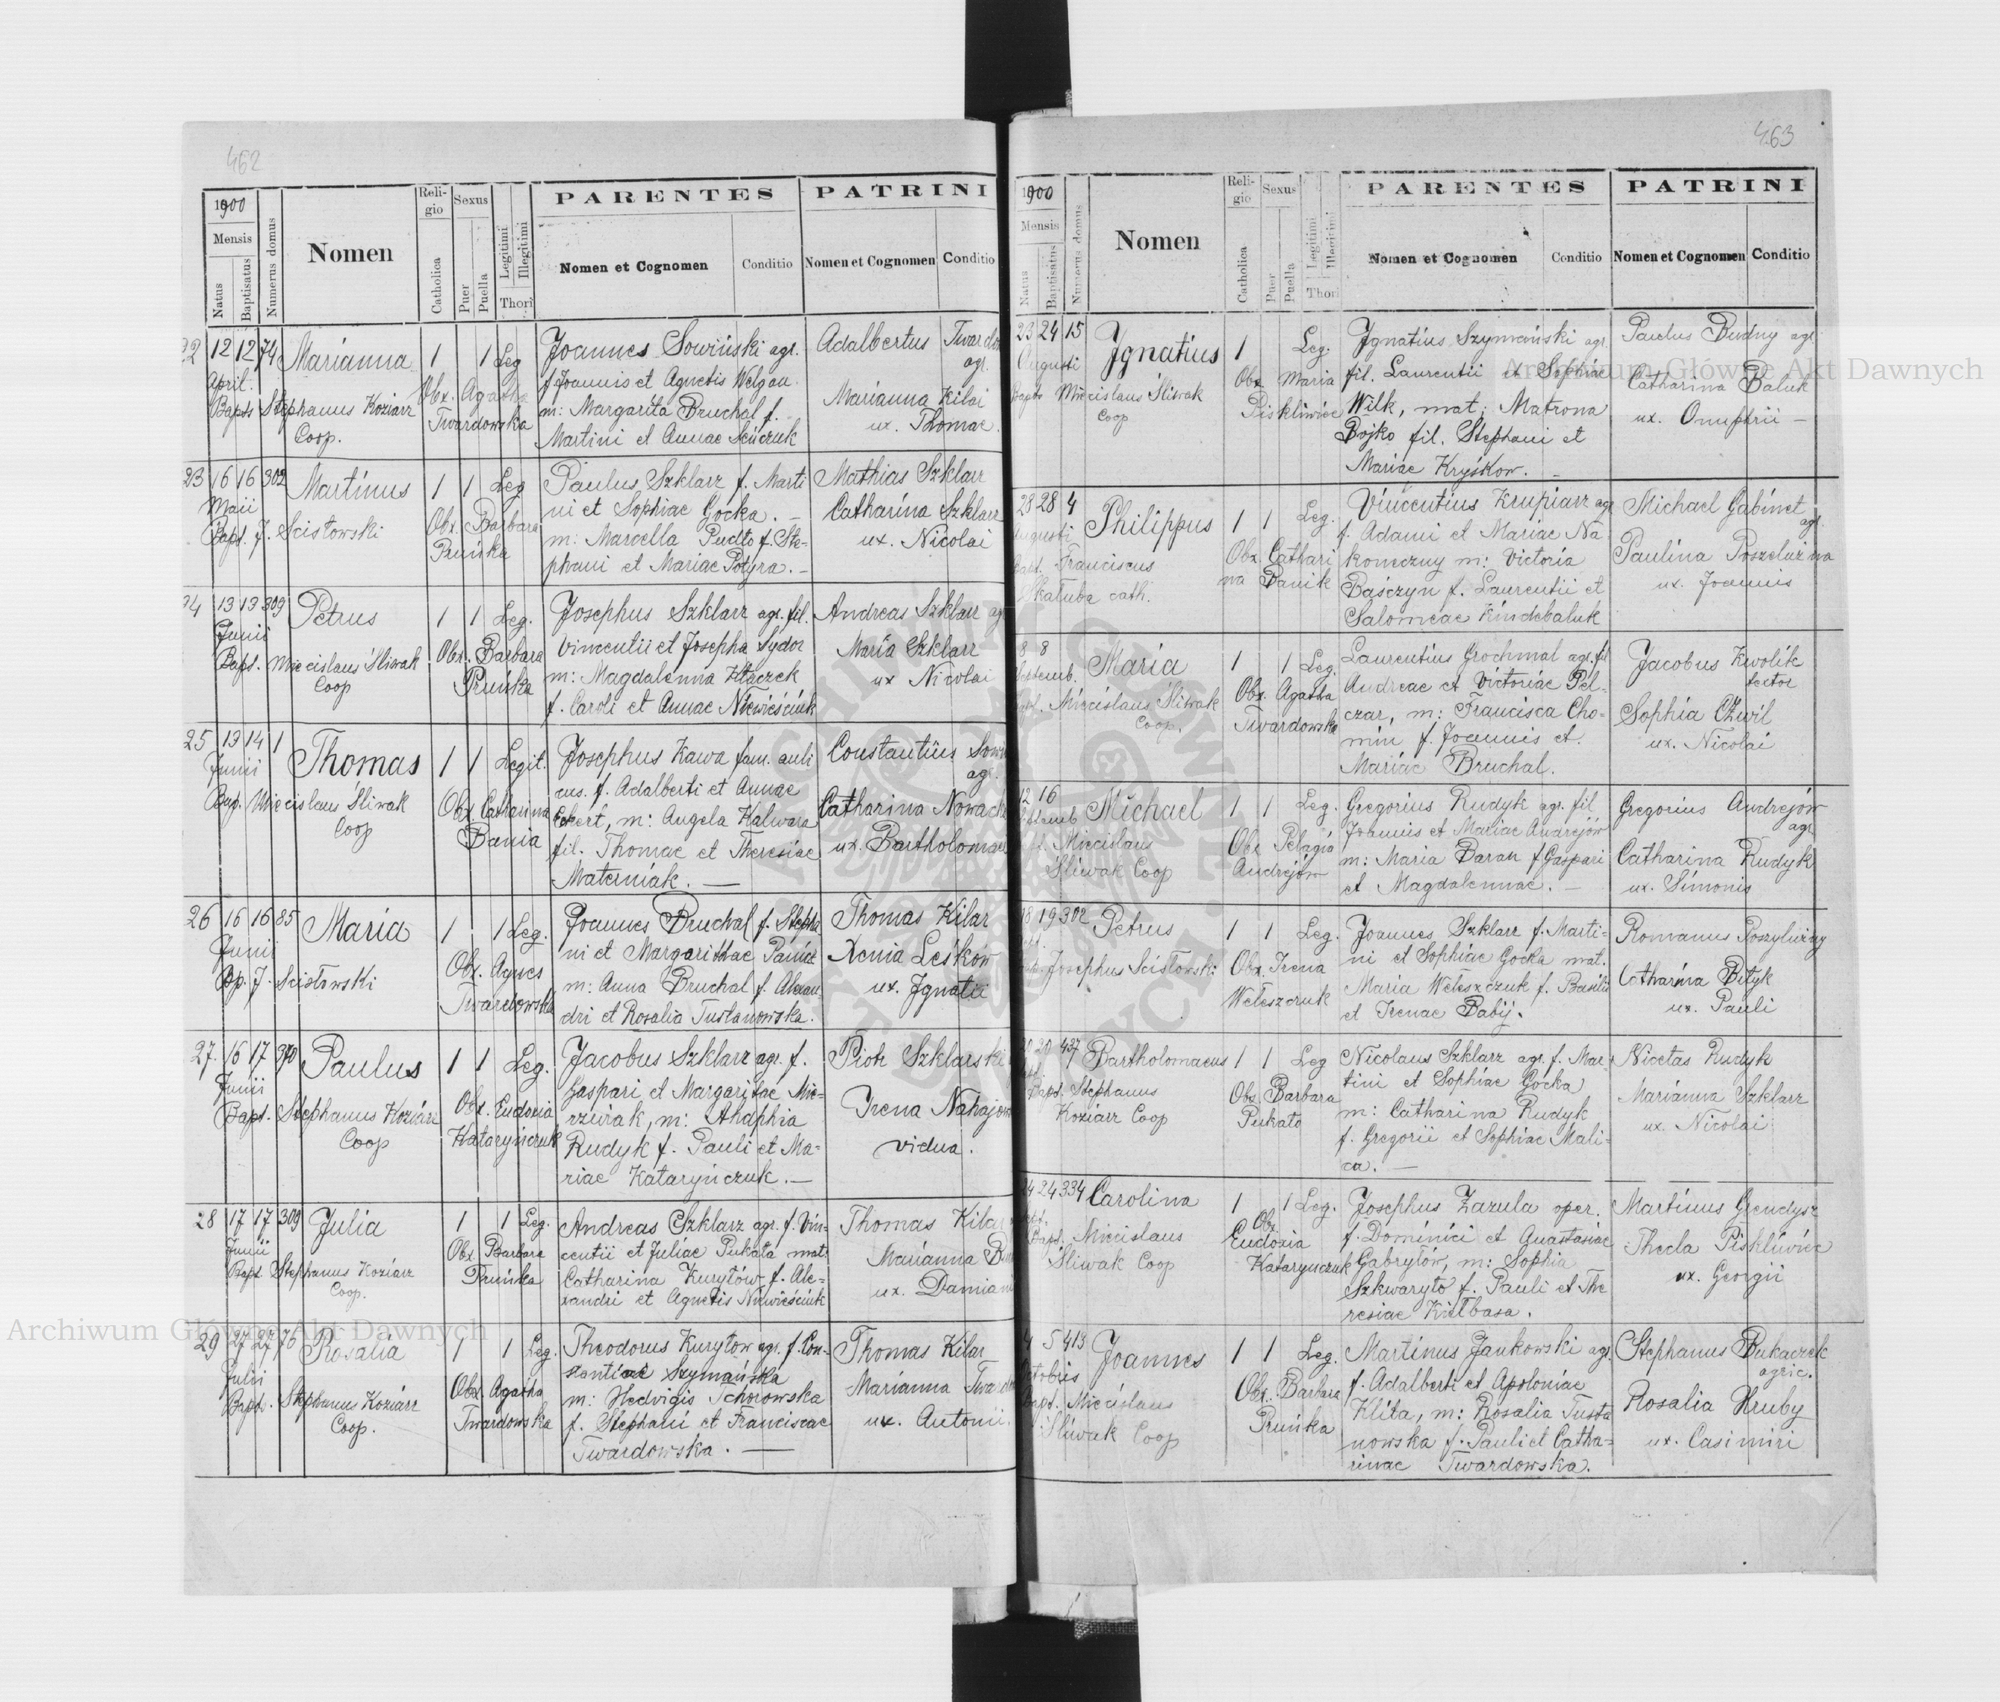 462
1900
Mensis
Natus
Baptisatus
Numerus domus
Nomen
Religio
Catholica
Sexus
Puer
Puella
Legitimi
Illegitimi
Thori
PARENTES
Nomen et Cognomen
Conditio
PATRINI
Nomen et Cognomen
Conditio
22 12 12 74 Marianna 1 1 Leg
April.
Bapts Stephanus Koziarz
Coop.
Obx. Agatha
Twardowska
Joannes Sowiński agr.
f. Joannis et Agnetis
m: Margarita Bruchal f.
Martini et Annae
Adalbertus
agr.
Marianna Kilai
ux. Thomae
23 16 16 302 Martinus 1 1 Leg
Maii
Bapt. J. Scisłowski
Obx. Barbara
Pruńka
Paulus Szklarz f. Marti
ni et Sophiae Gocka. —
m: Marcella Pudło f. Ste-
phani et Mariae Potyra. —
Mathias Szklarz
Catharina Szklarz
ux. Nicolai
24 13 13 309 Petrus 1 1 Leg.
Junii
Bapt. Miecislaus Śliwak
Coop
Obx. Barbara
Pruńka
Josephus Szklarz agr. fil.
Vincentii et Josepha Sydor
m: Magdalenna Kłaczek
f. Caroli et Annae Niewieściuk
Andreas Szklarz agr
Maria Szklarz
ux Nicolai
25 13 14 1 Thomas 1 1 Legit.
Junii
Bap. Miecislaus Sliwak
Coop
Obx. Catharina
Bania
Josephus Kawa fam. auli
cus. f. Adalberti et Annae
Eckert, m: Angela Kalwara
fil. Thomae et Theresiae
Materniak. —
Constantius
agr.
Catharina
ux. Bartholomaei
26 16 16 85 Maria 1 1 Leg.
Junii
Bap. J. Scisłowski
Obx. Agnes
Twardowska
Joannes Bruchal f. Stepha
ni et Margarithae
m: Anna Bruchal f. Alexan
dri et Rosalia Tustanowska.
Thomas Kilar
Xenia Leśków
ux. Ignatii
27 16 17 370 Paulus 1 1 Leg.
Junii
Bapt. Stephanus Koziarz
Coop
Obx. Eudoxia
Kataryńczuk
Jacobus Szklarz agr. f.
Gaspari et Margaritae Mie-
rzwiak, m: Ahaphia
Rudyk f. Pauli et Ma-
riae Kataryńczuk. —
Piotr Szklarski
Irena
vidua.
28 17 17 309 Julia 1 1 Leg.
Junii
Bapt. Stephanus Koziarz
Coop.
Obx. Barbara
Pruńka
Andreas Szklarz agr. f. Vin-
centii et Juliae Pukata mat:
Catharina Kuryłów f. Ale-
xandri et Agnetis Niewieściuk
Thomas Kilar
Marianna
ux. Damiani
29 27 27 75 Rosalia 1 1 Leg.
Julii
Bapt. Stephanus Koziarz
Coop.
Obx. Agatha
Twardowska
Theodorus Kuryłow agr. f. Con-
stantiae Szymańska
m: Hedvigis Tchorowska
f. Stephani et Franciscae
Twardowska. —
Thomas Kilar
Marianna
ux. Antonii.
463
1900
Mensis
Natus
Baptisatus
Numerus domus
Nomen
Religio
Catholica
Sexus
Puer
Puella
Legitimi
Illegitimi
Thori
PARENTES
Nomen et Cognomen
Conditio
PATRINI
Nomen et Cognomen
Conditio
23 24 15 Ignatius 1 Leg.
Augusti
Bapts Miecislaus Śliwak
Coop
Obx Maria
Piskliwiec
Ignatius Szymański agr.
fil. Laurentii et Sophiae
Wilk, mat: Matrona
Bojko fil. Stephani et
Mariae Kryśkow. —
Paulus Budny agr
Catharina Baluk
ux. Onuphrii —
28 28 4 Philippus 1 1 Leg.
Augusti
Bapt. Franciscus
Skałuba cath.
Obx Cathari
na Panik
Vincentius Krupiarz agr
f. Adami et Mariae Na
koneczny m: Victoria
Baśczyn f. Laurentii et
Salomeae Kindebaluk
Michael Gabinet
agr.
Paulina
ux. Joannis
8 8 Maria 1 1 Leg.
Septemb.
Bapt. Miecislaus Śliwak
Coop.
Obx. Agatha
Twardowska
Laurentius Grochmal agr. fil
Andreae et Victoriae Pel-
czar, m: Francisca Cho-
min f. Joannis et
Mariae Bruchal.
Jacobus Kwolik
tector
Sophia
ux. Nicolai
12 16 Michael 1 1 Leg.
Septemb
Bapt. Miecislaus
Śliwak Coop
Obx Pelagia
Andrejów
Gregorius Rudyk agr. fil
Joannis et Mariae Andrejów
m: Maria Baran f. Gaspari
et Magdalennae. —
Gregorius Andrejów
agr
Catharina Rudyk
ux. Simonis
18 19 302 Petrus 1 1 Leg.
Josephus Scisłowski
Obx. Irena
Weteszczuk
Joannes Szklarz f. Marti-
ni et Sophiae Gocka mat.
Maria Weteszczuk f. Basilii
et Irenae Babij.
Romanus
Catharina Bityk
ux. Pauli
437 Bartholomaeus 1 1 Leg
Bapt. Stephanus
Koziarz Coop
Obx Barbara
Pukato
Nicolaus Szklarz agr. f. Mar-
tini et Sophiae Gocka
m: Catharina Rudyk
f. Gregorii et Sophiae Mali-
ca. —
Nicetas Rudyk
Marianna Szklarz
ux. Nicolai
24 24 334 Carolina 1 1 Leg.
Bapt. Miecislaus
Śliwak Coop
Obx.
Eudoxia
Kataryńczuk
Josephus Zazula oper.
f. Dominici et Anastasiae
Gabryłów, m: Sophia
Szkwaryło f. Pauli et The
resiae Kiełbasa.
Martinus Grendysz
Thecla Piskliwiec
ux. Georgii
4 5 413 Joannes 1 1 Leg.
Octobris
Bapt. Miecislaus
Śliwak Coop
Obx. Barbara
Pruńka
Martinus Jankowski agr.
f. Adalberti et Apoloniae
Klita, m: Rosalia Tusta
nowska f. Pauli et Catha-
rinae Twardowska.
Stephanus Bukaczek
agric.
Rosalia Hruby
ux. Casimiri
Archiwum Główne Akt Dawnych
Archiwum Główne Akt Dawnych